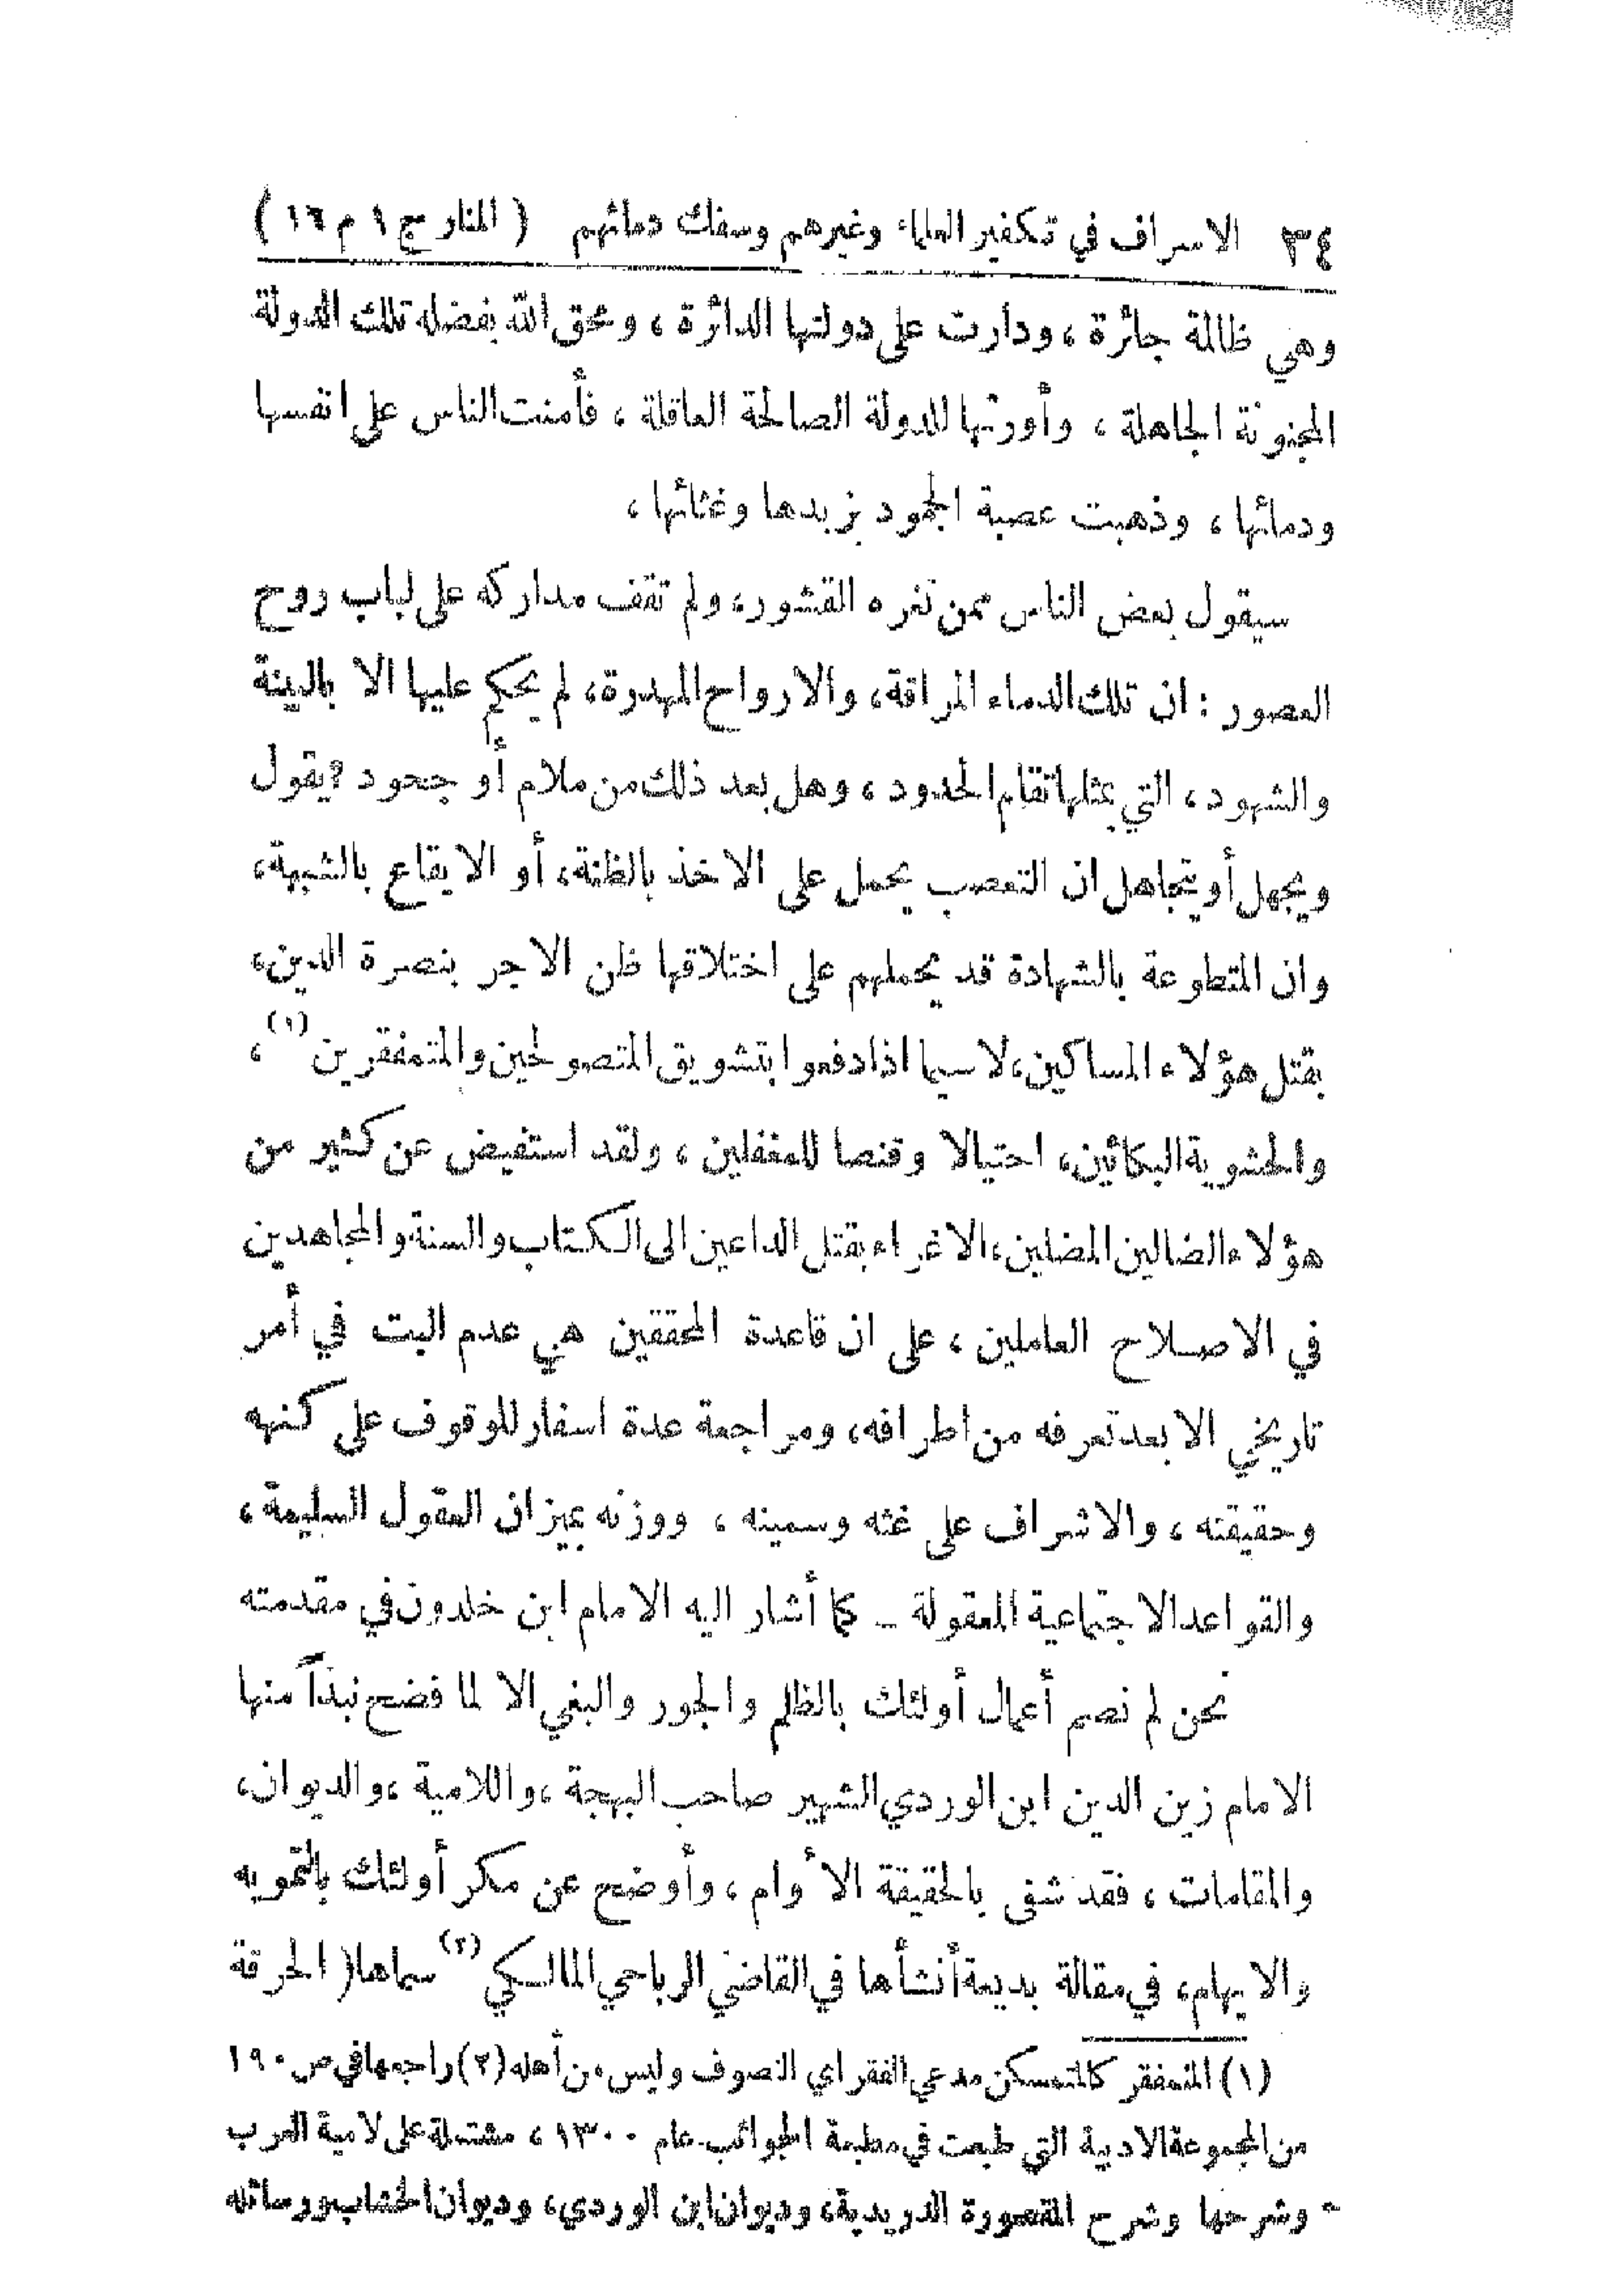 ٣٤ الاسراف في تكفير العلماء وغيرهم وسفك دمائهم ( المنار ج ١ م ١٦ )
وهي ظالمة جائرة ، ودارت على دولتها الدائرة ، ومحق الله بفضله تلك الدولة
المجنونة الجاهلة ، وأورثها للدولة الصالحة العاقلة ، فأمنت الناس على انفسها
ودمائها ، وذهبت عصبة الجمود بزبدها وغثائها ،
سيقول بعض الناس ممن تغره القشور، ولم تقف مداركه على لباب روح
العصور : ان تلك الدماء المراقة، والارواح المهدرة، لم يحكم عليها الا بالبينة
والشهود، التي بمثلها تقام الحدود ، وهل بعد ذلك من ملام أو جحود ? يقول
ويجهل أو يتجاهل ان التعصب يحمل على الاخذ بالظنة، أو الايقاع بالشبهة،
وان المتطوعة بالشهادة قد يحملهم على اختلاقها ظن الاجر بنصرة الدين،
بقتل هؤلاء المساكين، لا سيما اذا دفعوا بتشويق المتصولحين والمتمفقرين (١) ،
والحشوية البكائين، احتيالا وقنصا للمغفلين ، ولقد استفيض عن كثير من
هؤلاء الضالين المضلين، الاغراء بقتل الداعين الى الكتاب والسنة والمجاهدين
في الاصلاح العاملين ، على ان قاعدة المحققين هي عدم البت في أمر
تاريخي الا بعد تعرفه من اطرافه، ومراجعة عدة اسفار للوقوف على كنهه
وحقيقته ، والاشراف على غثه وسمينه ، ووزنه بميزان العقول السليمة ،
والقواعد الاجتماعية المعقولة - كما أشار اليه الامام ابن خلدون في مقدمته
نحن لم نصم أعمال أولئك بالظلم والجور والبغي الا لما فضح نبذاً منها
الامام زين الدين ابن الوردي الشهير صاحب البهجة ، واللامية ، والديوان،
والمقامات ، فقد شفى بالحقيقة الأوام ، وأوضح عن مكر أولئك بالتمويه
والايهام، في مقالة بديعة أنشأها في القاضي الرباحي المالكي (٢) سماها ( الحرقة
(١) المتمفقر كالمتمسكن مدعي الفقر اي التصوف وليس من أهله (٢) راجعها في ص ١٩٠
من المجموعة الادبية التي طبعت في مطبعة الجوائب عام ١٣٠٠ ، مشتملة على لامية العرب
وشرحها وشرح المقصورة الدريدية، وديوان ابن الوردي، وديوان الخشاب ورسائله